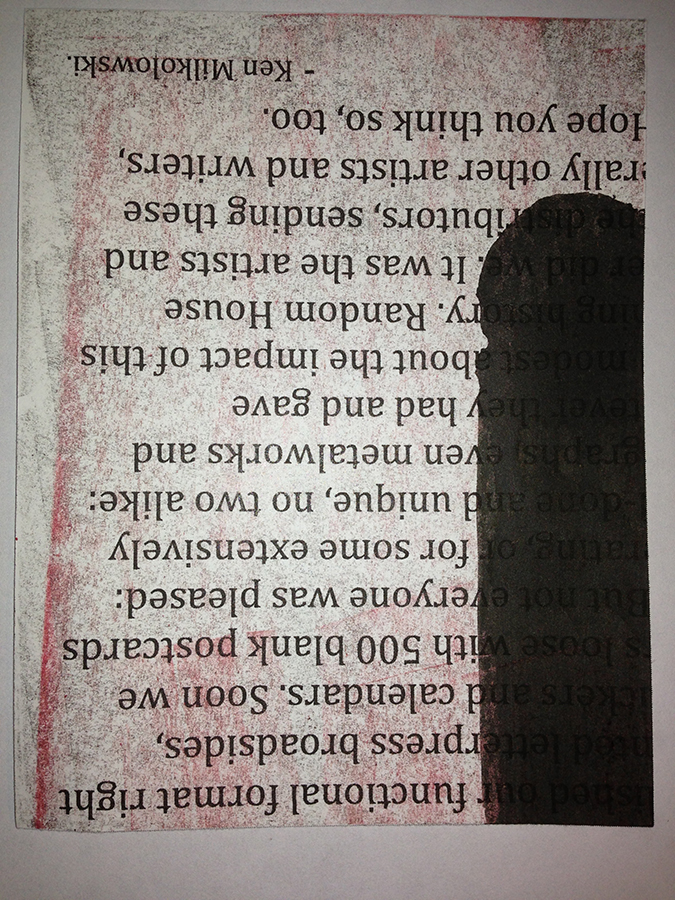 ished our functional format right
inted letterpress broadsides,
ickers and calendars. Soon we
s loose with 500 blank postcards
But not everyone was pleased:
rating, or for some extensively
-done and unique, no two alike:
graphs, even metalworks and
rever they had and gave
modest about the impact of this
ning history. Random House
er did we. It was the artists and
he distributors, sending these
erally other artists and writers,
Hope you think so, too.
- Ken Milkolowski.